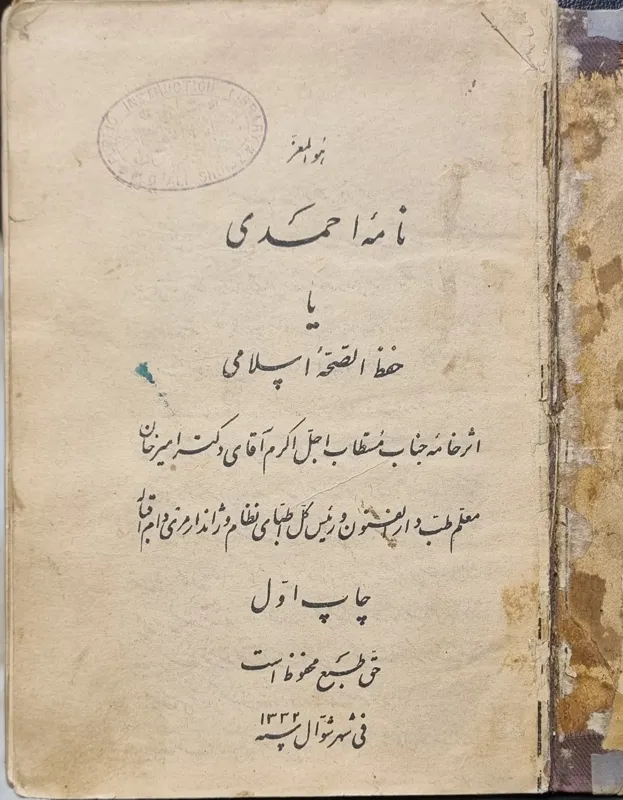 PUBLIC INSTRUCTION LIBRARY
هو المعزّ
نامهٔ احمدی
یا
حفظ الصّحّهٔ اسلامی
اثر خامهٔ جناب مستطاب اجلّ اکرم آقای دکتر امیر خان
معلّم طبّ دار الفنون و رئیس کلّ اطبّای نظام و ژاندارمری دام اقباله
چاپ اوّل
حقّ طبع محفوظ است
فی شهر شوّال سنه ۱۳۳۲